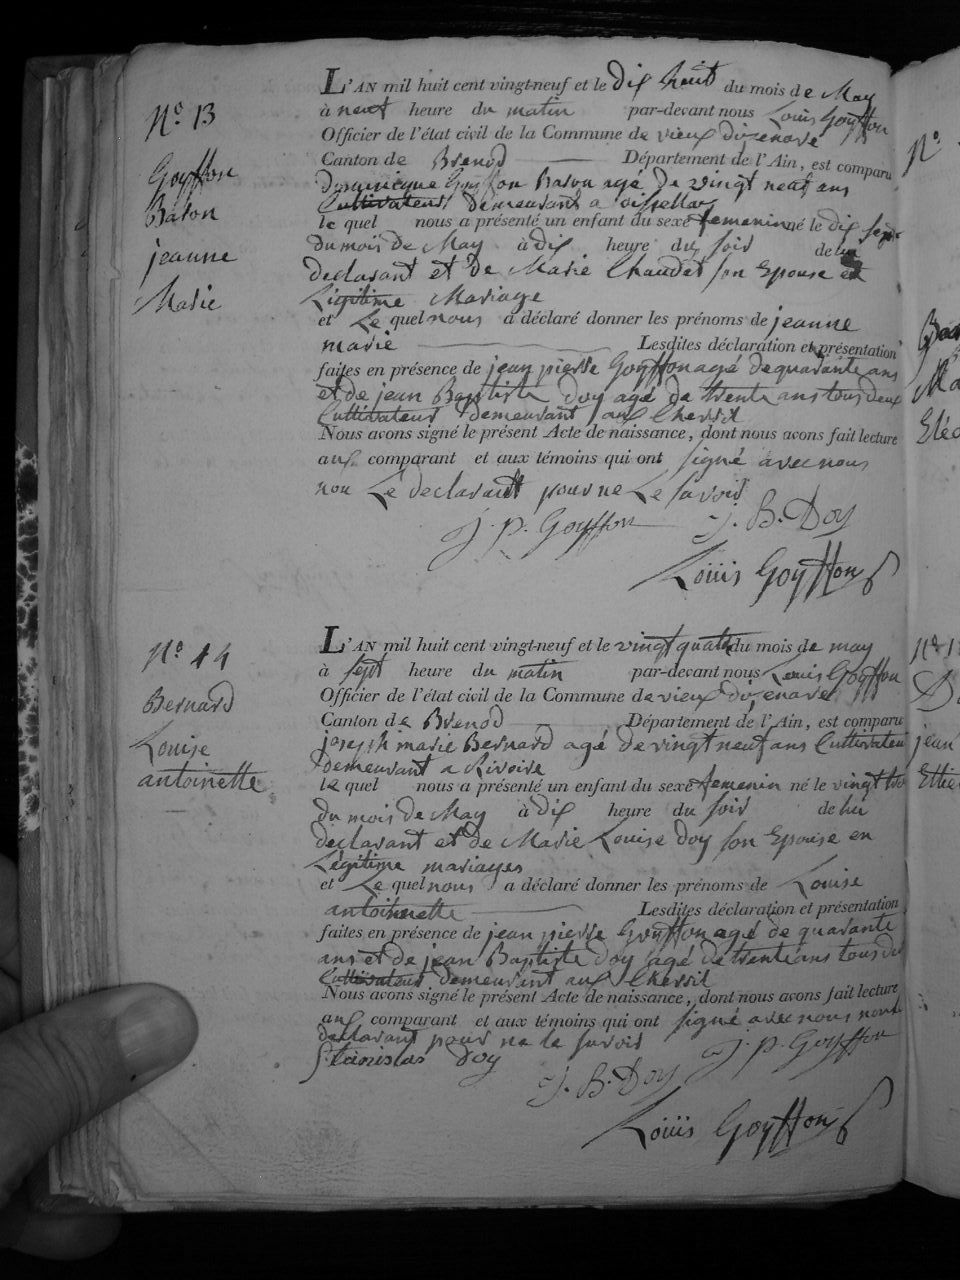 N.o 13
Goyffon
Baron
jeanne
Marie
L'AN mil huit cent vingt-neuf et le dix huit du mois de May
à neuf heure du matin par-devant nous Louis Goyffon
Officier de l'état civil de la Commune de vieux dizenave
Canton de Brenod Département de l'Ain, est comparu
dominique Goyffon Baron agé de vingt neuf ans
Cultivateur demeurant a
le quel nous a présenté un enfant du sexe femenin né le dix sept
du mois de May à dix heure du soir de lui
declarant et de Marie Chaudet son Epouse en
Légitime Mariage
et Le quel nous a déclaré donner les prénoms de jeanne
marie Lesdites déclaration et présentation
faites en présence de jean pierre Goyffon agé de quarante ans
et de jean Baptiste doy agé de trente ans tous deux
Cultivateurs demeurant aux
Nous avons signé le présent Acte de naissance, dont nous avons fait lecture
aux comparant et aux témoins qui ont signé avec nous
non Le declarant pour ne Le savoir
J. P. Goyffon J. B. Doy
Louis Goyffon
N.o 14
Bernard
Louise
antoinette
L'AN mil huit cent vingt-neuf et le vingt quatre du mois de may
à sept heure du matin par-devant nous Louis Goyffon
Officier de l'état civil de la Commune de vieux dizenave
Canton de Brenod Département de l'Ain, est comparu
joseph marie Bernard agé de vingt neuf ans Cultivateur
demeurant a Rivoire
le quel nous a présenté un enfant du sexe femenin né le vingt
du mois de May à dix heure du soir de lui
declarant et de Marie Louise doy son Epouse en
Légitime mariages
et Le quel nous a déclaré donner les prénoms de Louise
antoinette Lesdites déclaration et présentation
faites en présence de jean pierre Goyffon agé de quarante
ans et de jean Baptiste doy agé de trente ans tous
Cultivateurs demeurant aux
Nous avons signé le présent Acte de naissance, dont nous avons fait lecture
aux comparant et aux témoins qui ont signé avec nous
declarant pour ne le savoir
Stanislas Doy J. P. Goyffon
J. B. Doy
Louis Goyffon